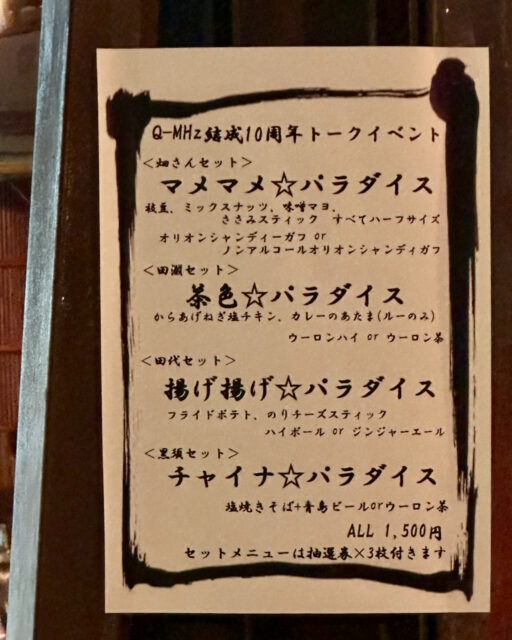 Q-MHz結成10周年トークイベント
<畑さんセット>
マメマメ☆パラダイス
枝豆、ミックスナッツ、味噌マヨ、
ささみスティック すべてハーフサイズ
オリオンシャンディーガフ or
ノンアルコールオリオンシャンディガフ
<田淵セット>
茶色☆パラダイス
からあげねぎ塩チキン、カレーのあたま(ルーのみ)
ウーロンハイ or ウーロン茶
<田代セット>
揚げ揚げ☆パラダイス
フライドポテト、のりチーズスティック
ハイボール or ジンジャーエール
<黒須セット>
チャイナ☆パラダイス
塩焼きそば+青島ビールorウーロン茶
ALL 1,500円
セットメニューは抽選券×3枚付きます